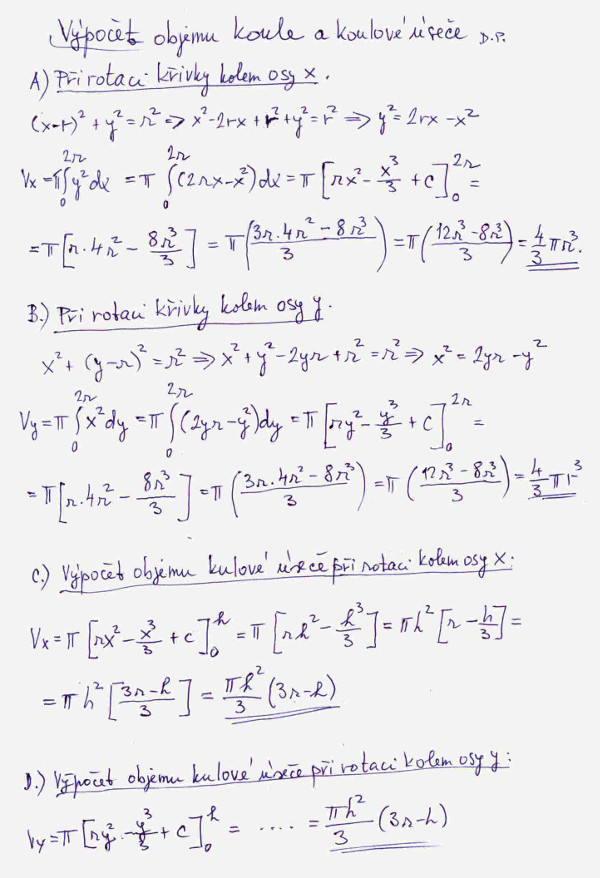 Výpočet objemu koule a koulové úseče D.P.
A) Při rotaci křivky kolem osy x.
(x-r)² + y² = r² ⇒ x² - 2rx + r² + y² = r² ⇒ y² = 2rx - x²
Vx = π∫₀²ʳ y²dx = π ∫₀²ʳ (2rx - x²)dx = π [rx² - x³/3 + c]₀²ʳ =
= π[r·4r² - 8r³/3] = π(3r·4r² - 8r³/3) = π(12r³ - 8r³/3) = 4/3 πr³.
B.) Při rotaci křivky kolem osy y.
x² + (y-r)² = r² ⇒ x² + y² - 2yr + r² = r² ⇒ x² = 2yr - y²
Vy = π ∫₀²ʳ x²dy = π ∫₀²ʳ (2yr - y²)dy = π [ry² - y³/3 + c]₀²ʳ =
= π[r·4r² - 8r³/3] = π (3r·4r² - 8r³/3) = π (12r³ - 8r³/3) = 4/3 πr³
C.) Výpočet objemu kulové úseče při rotaci kolem osy x:
Vx = π [rx² - x³/3 + c]₀ʰ = π [rh² - h³/3] = πh² [r - h/3] =
= πh² [3r-h/3] = πh²/3 (3r-h)
D.) Výpočet objemu kulové úseče při rotaci kolem osy y:
Vy = π [ry² - y³/3 + c]₀ʰ = ..... = πh²/3 (3r-h)